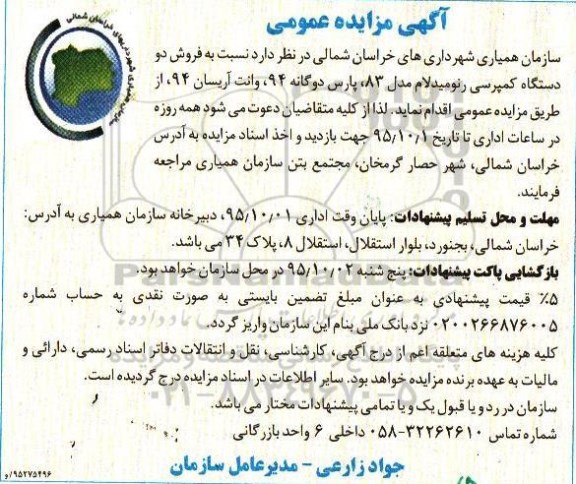 آگهی مزایده عمومی
سازمان همیاری شهرداری های خراسان شمالی در نظر دارد نسبت به فروش دو
دستگاه کمپرسی رنومیدلام مدل ۸۳، پارس دوگانه ۹۴، وانت آریسان ۹۴، از
طریق مزایده عمومی اقدام نماید. لذا از کلیه متقاضیان دعوت می شود همه روزه
در ساعات اداری تا تاریخ ۹۵/۱۰/۱ جهت بازدید و اخذ اسناد مزایده به آدرس
خراسان شمالی، شهر حصار گرمخان، مجتمع بتن سازمان همیاری مراجعه
فرمایند.
مهلت و محل تسلیم پیشنهادات: پایان وقت اداری ۹۵/۱۰/۰۱، دبیرخانه سازمان همیاری به آدرس:
خراسان شمالی، بجنورد، بلوار استقلال، استقلال ۸، پلاک ۳۴ می باشد.
بازگشایی پاکت پیشنهادات: پنج شنبه ۹۵/۱۰/۰۲ در محل سازمان خواهد بود.
۵٪ قیمت پیشنهادی به عنوان مبلغ تضمین بایستی به صورت نقدی به حساب شماره
۰۲۰۰۲۶۶۸۷۶۰۰۵ نزد بانک ملی بنام این سازمان واریز گردد.
کلیه هزینه های متعلقه اعم از درج آگهی، کارشناسی، نقل و انتقالات دفاتر اسناد رسمی، دارائی و
مالیات به عهده برنده مزایده خواهد بود. سایر اطلاعات در اسناد مزایده درج گردیده است.
سازمان در رد و یا قبول یک و یا تمامی پیشنهادات مختار می باشد.
شماره تماس ۳۲۲۶۲۶۱۰-۰۵۸ داخلی ۶ واحد بازرگانی
جواد زارعی - مدیرعامل سازمان
۹۵۲۷۵۴۹۶/و
ParsNamadData
۰۲۱-۸۸۳۴۹۶۷۰-۵